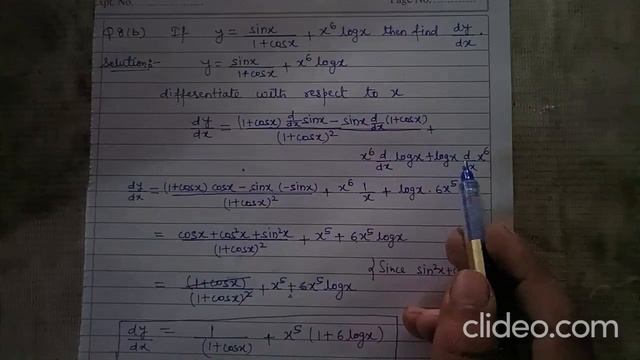 Page No.
Q8(b) If y = sinx/(1+cosx) + x⁶ logx then find dy/dx.
Solution:- y = sinx/(1+cosx) + x⁶ logx
differentiate with respect to x
dy/dx = ((1+cosx) d/dx sinx − sinx d/dx (1+cosx))/(1+cosx)² +
x⁶ d/dx logx + logx d/dx x⁶
dy/dx = ((1+cosx) cosx − sinx (−sinx))/(1+cosx)² + x⁶ 1/x + logx · 6x⁵
= (cosx + cos²x + sin²x)/(1+cosx)² + x⁵ + 6x⁵ logx
{Since sin²x+
= (1+cosx)/(1+cosx)² + x⁵ + 6x⁵ logx
dy/dx = 1/(1+cosx) + x⁵ (1+6 logx)
clideo.com